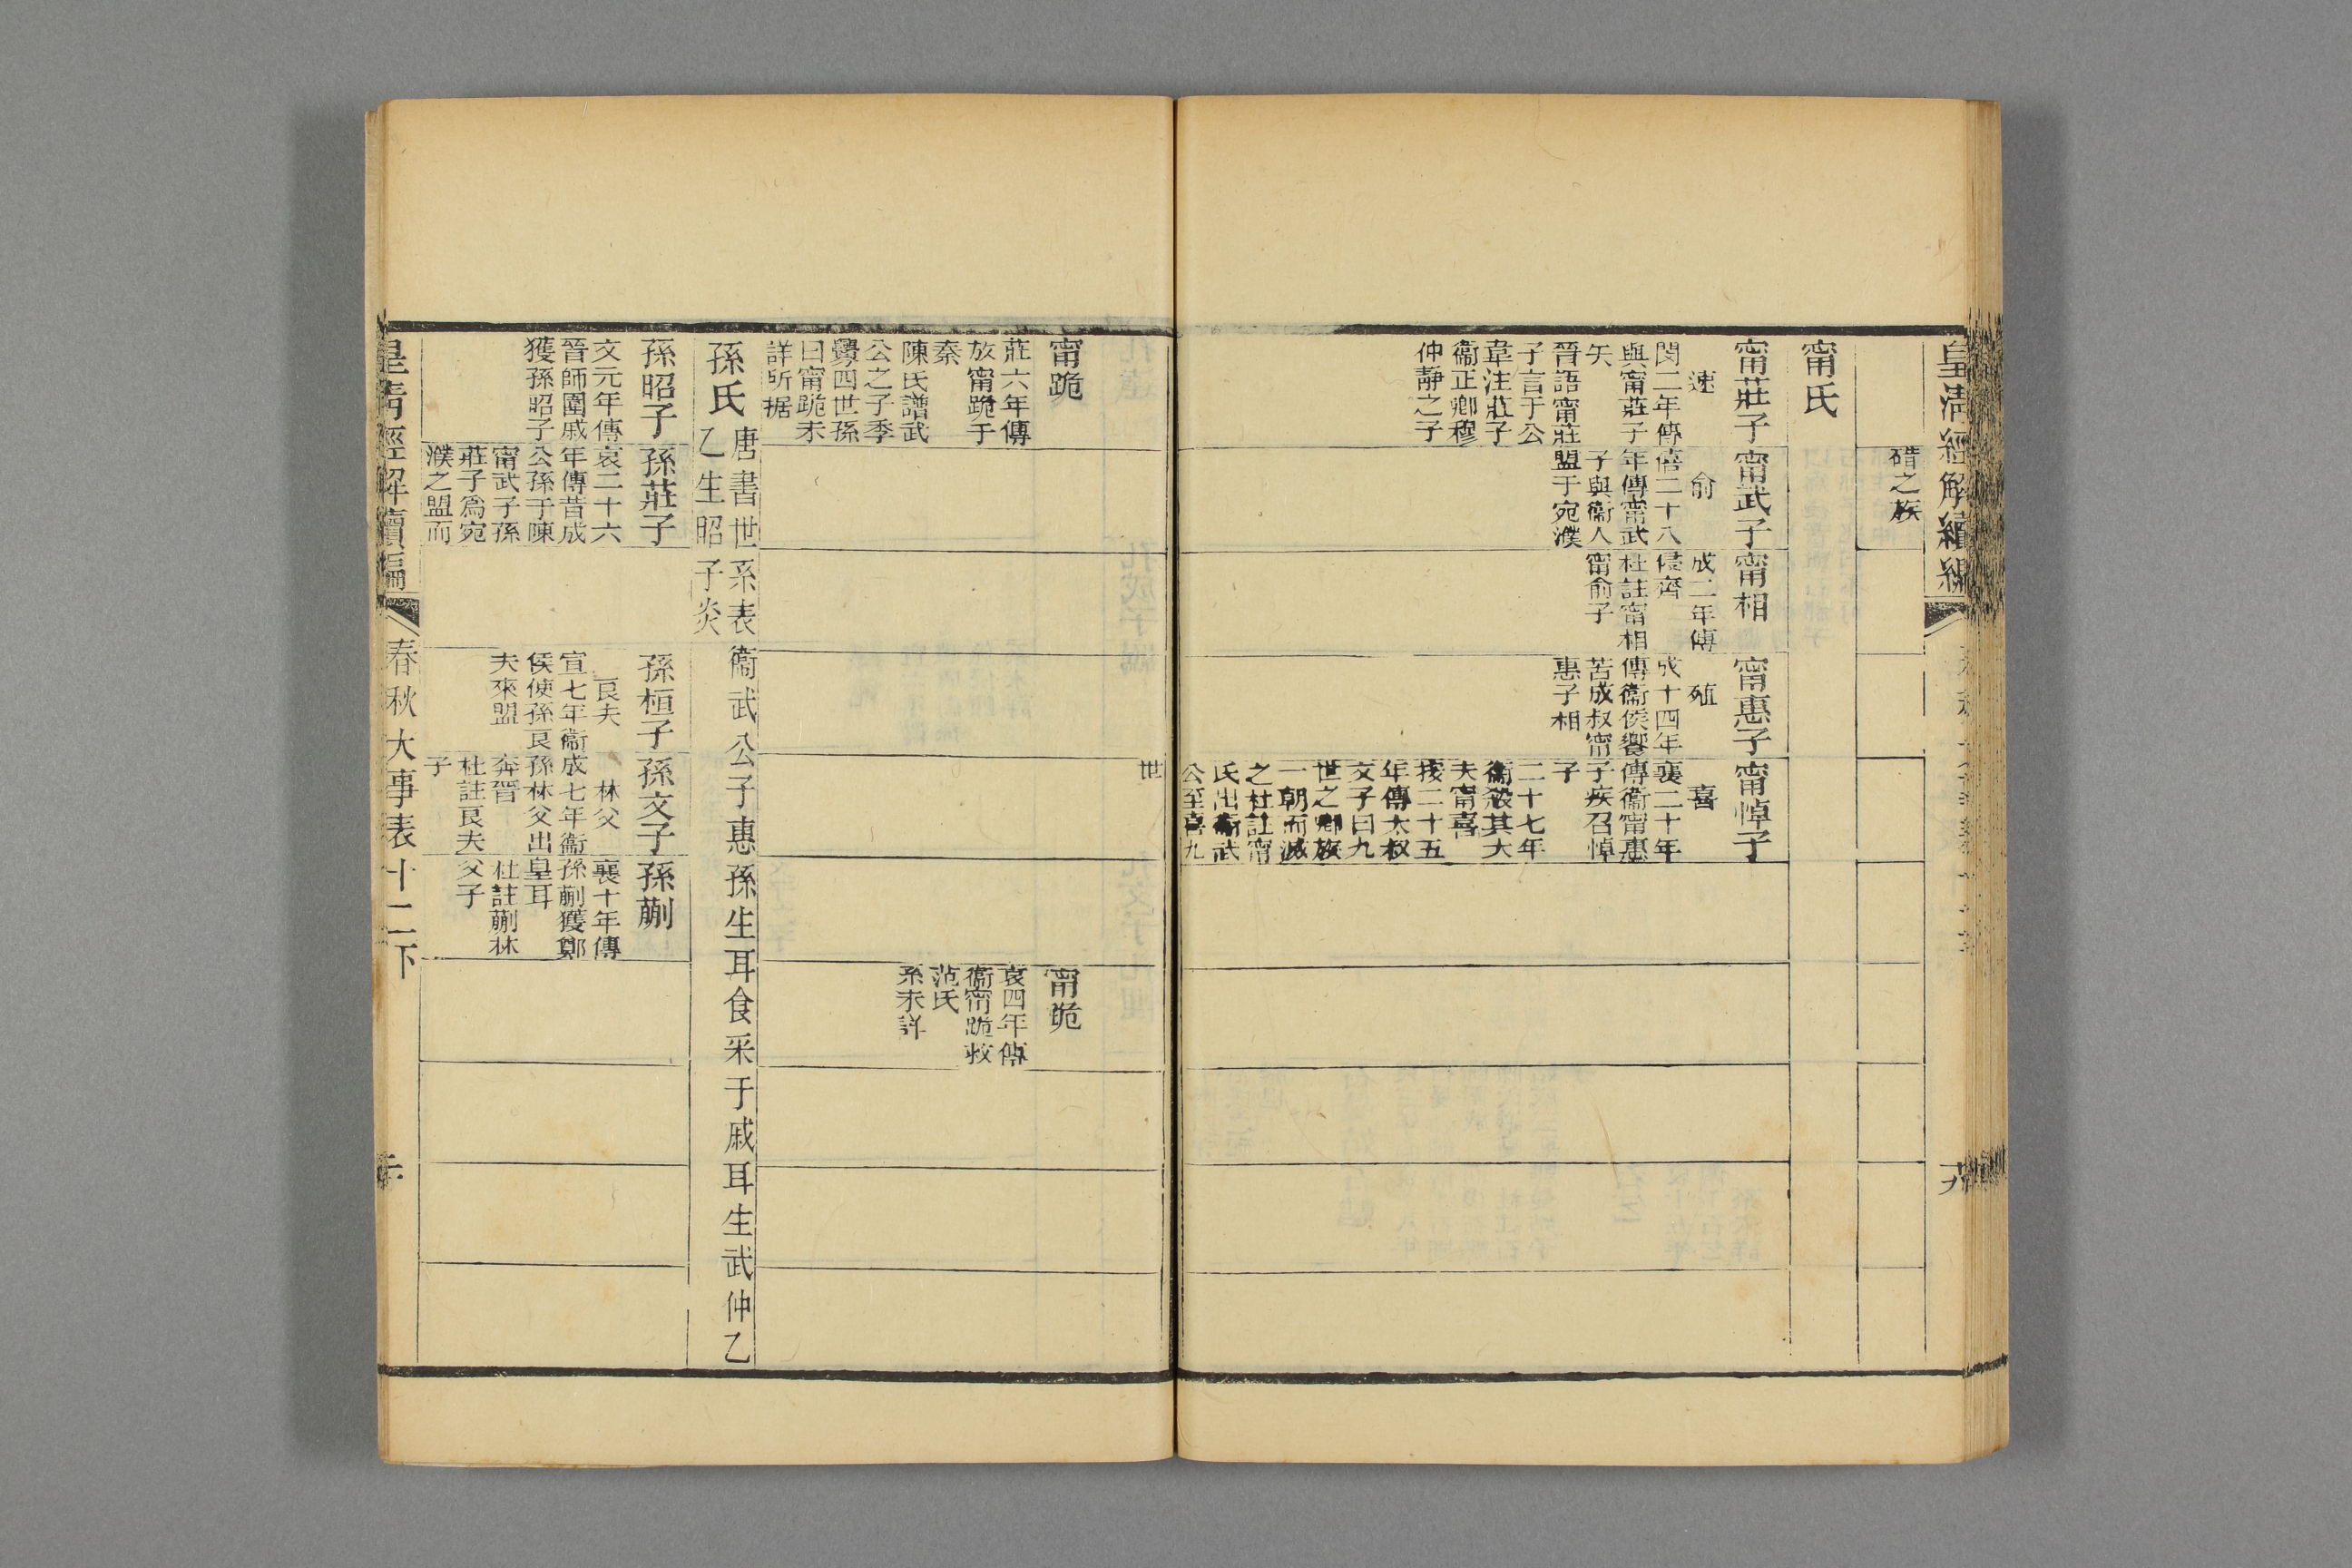 皇清經解續編
碏之族
甯氏
甯莊子
速
閔二年傳
與甯莊子
矢
晉語甯莊
子言于公
韋注莊子
衞正卿穆
仲靜之子
甯武子
俞
僖二十八
年傳甯武
子與衞人
盟于宛濮
甯相
成二年傳
侵齊
杜註甯相
甯俞子
甯惠子
殖
成十四年
傳衞侯饗
苦成叔甯
惠子相
甯悼子
喜
襄二十年
傳衞甯惠
子疾召悼
子
二十七年
衞殺其大
夫甯喜
按二十五
年傳太叔
文子曰九
世之卿族
一朝而滅
之杜註甯
氏出衞武
公至喜九
世
甯跪
莊六年傳
放甯跪于
秦
陳氏譜武
公之子季
亹四世孫
曰甯跪未
詳所据
甯跪
哀四年傳
衞甯跪救
范氏
系未詳
孫氏
唐書世系表衞武公子惠孫生耳食采于戚耳生武仲乙
乙生昭子炎
孫昭子
文元年傳
晉師圍戚
獲孫昭子
孫莊子
哀二十六
年傳昔成
公孫于陳
甯武子孫
莊子爲宛
濮之盟而
孫桓子
良夫
宣七年衞
侯使孫良
夫來盟
孫文子
林父
成七年衞
孫林父出
奔晉
杜註良夫
子
孫蒯
襄十年傳
孫蒯獲鄭
皇耳
杜註蒯林
父子
皇清經解續編
春秋大事表十二下